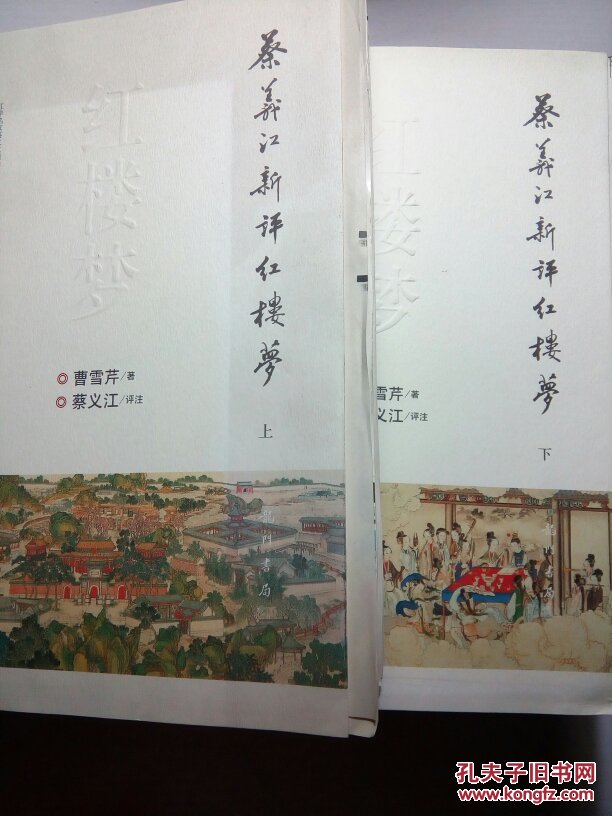 蔡義江新评红樓夢
上
红楼梦
◎ 曹雪芹/著
◎ 蔡义江/评注
龍門書局
蔡義江新评红樓夢
下
红楼梦
雪芹/著
义江/评注
孔夫子旧书网
www.kongfz.com